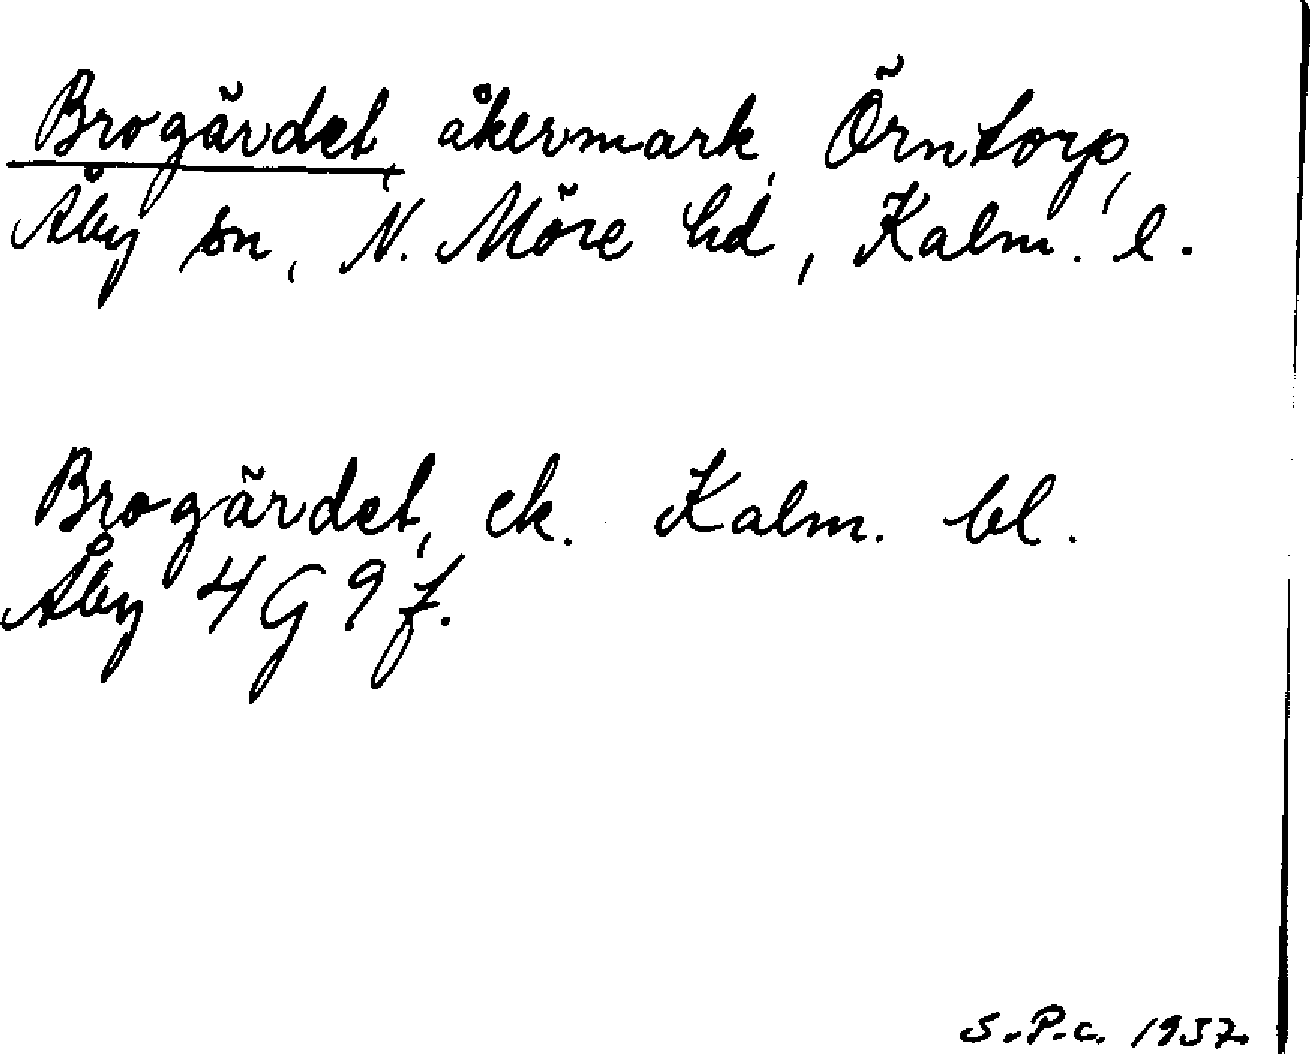 Brogärdet, åkermark, Örntorp,
Åby sn, N. Möre hd, Kalm. l.
Brogärdet, ek. Kalm. bl.
Åby 4G 9f.
S.P.c. 1957.